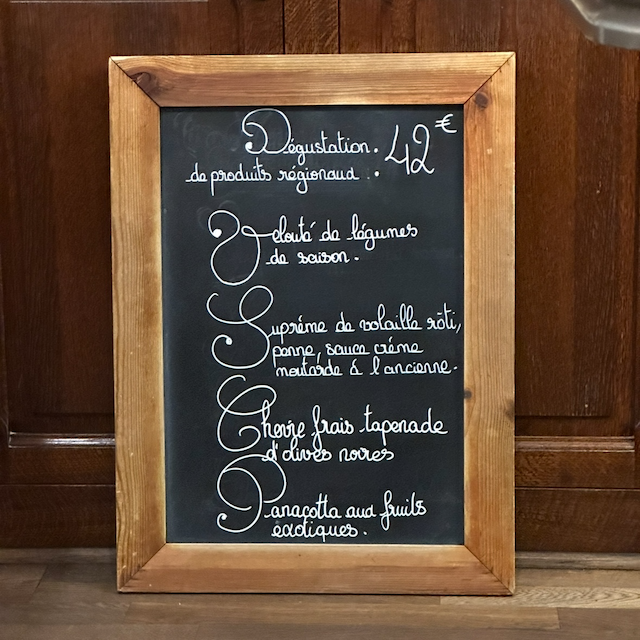 Dégustation : 42€
de produits régionaux :
Velouté de légumes
de saison.
Suprême de volaille rôti,
penne, sauce crème
moutarde à l'ancienne.
Chèvre frais tapenade
d'olives noires
Panacotta aux fruits
exotiques.